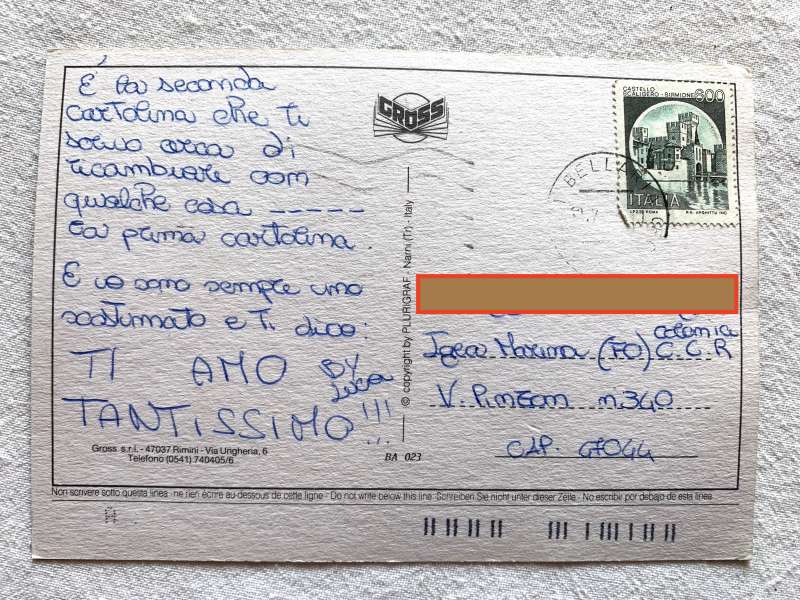 É la seconda
cartolina che ti
scrivo cerca di
ricambiare con
qualche cosa -----
la prima cartolina.
E io sono sempre uno
scostumato e Ti dico:
TI AMO BY
Luca
TANTISSIMO!!!
Gross s.r.l. - 47037 Rimini - Via Ungheria, 6
Telefono (0541) 740405/6
GROSS
© copyright by PLURIGRAF - Narni (Tr) - Italy
BA 023
CASTELLO
SCALIGERO - SIRMIONE
600
ITALIA
I.P.Z.S. ROMA
BELL
colonia
Igea Marina (FO) C.C.R
V. Pinzon n. 340
CAP. 47044
Non scrivere sotto questa linea - ne rien écrire au-dessous de cette ligne - Do not write below this line. Schreiben Sie nicht unter dieser Zeile - No escribir por debajo de esta linea